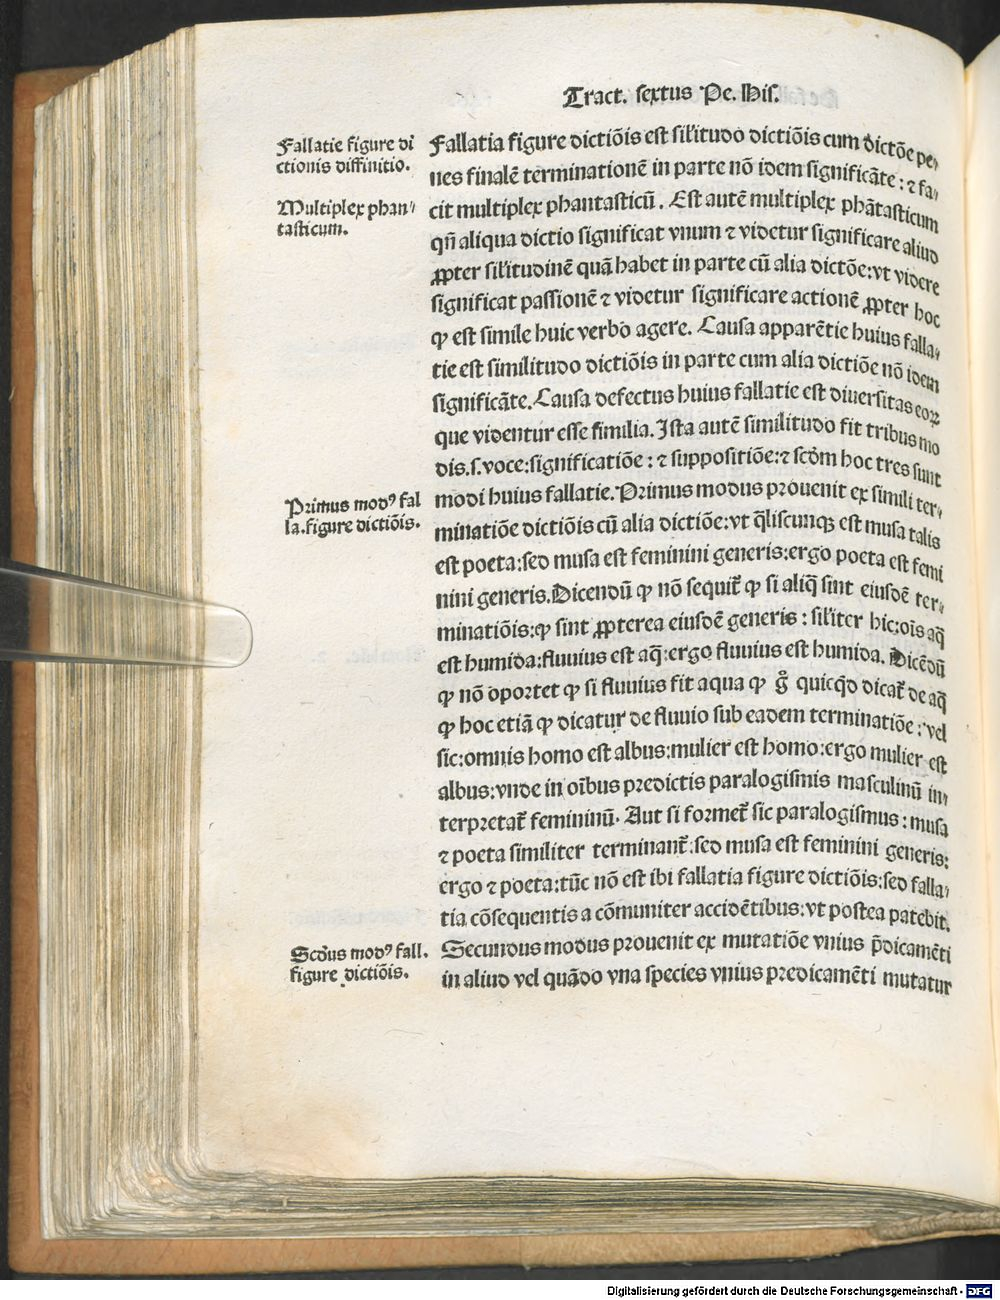 Tract. sextus Pe. His.
Fallatie figure di
ctionis diffinitio.
Multiplex phan-
tasticum.
Fallatia figure dictiōis est sil'itudo dictiōis cum dictōe pe-
nes finalē terminationē in parte nō idem significāte: ⁊ fa-
cit multiplex phantasticū. Est autē multiplex phātasticum
qn̄ aliqua dictio significat vnum ⁊ videtur significare aliud
ꝓpter sil'itudinē quā habet in parte cū alia dictōe: vt videre
significat passionē ⁊ videtur significare actionē ꝓpter hoc
ꝙ est simile huic verbo agere. Causa apparētie huius falla-
tie est similitudo dictiōis in parte cum alia dictiōe nō idem
significāte. Causa defectus huius fallatie est diuersitas eoꝝ
que videntur esse similia. Ista autē similitudo fit tribus mo
dis. s. voce: significatiōe: ⁊ suppositiōe: ⁊ scdm̄ hoc tres sunt
Primus modꝰ fal
la. figure dictiōis.
modi huius fallatie. Primus modus prouenit ex simili ter-
minatiōe dictiōis cū alia dictiōe: vt q̄liscunqꝫ est musa talis
est poeta: sed musa est feminini generis: ergo poeta est femi
nini generis. Dicendū ꝙ nō sequit̄ ꝙ si aliq̄ sint eiusdē ter-
minatiōis: ꝙ sint ꝓpterea eiusdē generis: sil'iter hic: oīs aq̄
est humida: fluuius est aq̄: ergo fluuius est humida. Dicēdū
ꝙ nō oportet ꝙ si fluuius fit aqua ꝙ gͦ quicq̄d dicat̄ de aq̄
ꝙ hoc etiā ꝙ dicatur de fluuio sub eadem terminatiōe: vel
sic: omnis homo est albus: mulier est homo: ergo mulier est
albus: vnde in oībus predictis paralogismis masculinū in-
terpretat̄ femininū. Aut si formet̄ sic paralogismus: musa
⁊ poeta similiter terminant̄: sed musa est feminini generis:
ergo ⁊ poeta: tūc nō est ibi fallatia figure dictiōis: sed falla-
tia cōsequentis a cōmuniter accidētibus: vt postea patebit.
Scdus modꝰ fall.
figure dictiōis.
Secundus modus prouenit ex mutatiōe vnius p̄dicamēti
in aliud vel quādo vna species vnius predicamēti mutatur
Digitalisierung gefördert durch die Deutsche Forschungsgemeinschaft - DFG